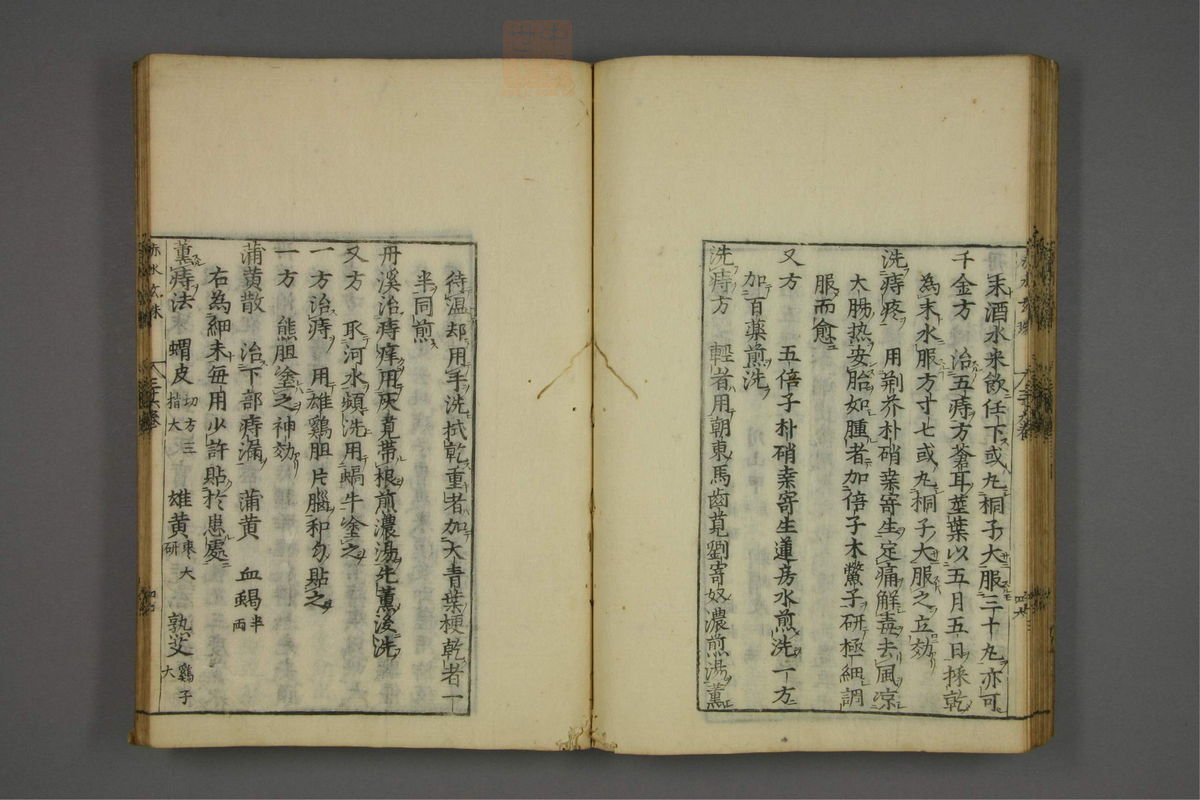 禾酒水米飲任下或丸桐子大服三十丸亦可
千金方 治五痔方蒼耳莖葉以五月五日採乾
為末水服方寸七或丸桐子大服之立効
洗痔疼 用荆芥朴硝桒寄生定痛解毒去風凉
大腸热安胎如腫者加倍子木鱉子研極細調
服而愈
又方 五倍子朴硝桒寄生蓮房水煎洗一方
加百藥煎洗
洗痔方 輕者用朝東馬齒莧劉寄奴濃煎湯薫
待温却用手洗拭乾重者加大青葉梗乾者一
半同煎
丹溪治痔痒用灰莧帶根煎濃湯先薫後洗
又方 取河水頻洗用蝸牛塗之
一方治痔 用雄鷄胆片腦和匀貼之
一方 熊胆塗之神効
蒲黄散 治下部痔漏 蒲黄 血竭半兩
右為細末每用少許貼於患處
薫痔法 蝟皮切方三指大 雄黄棗大研 孰艾鷄子大
赤水玄珠